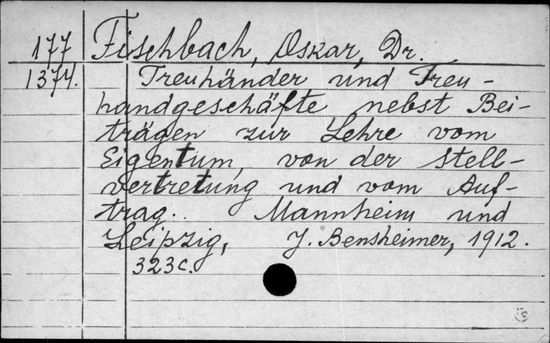 177 Fischbach, Oskar, Dr.
1374. Treuhänder und Treu-
handgeschäfte nebst Bei-
trägen zur Lehre vom
Eigentum, von der Stell-
vertretung und vom Auf-
trag.. Mannheim und
Leipzig, J. Bensheimer, 1912.
323c.